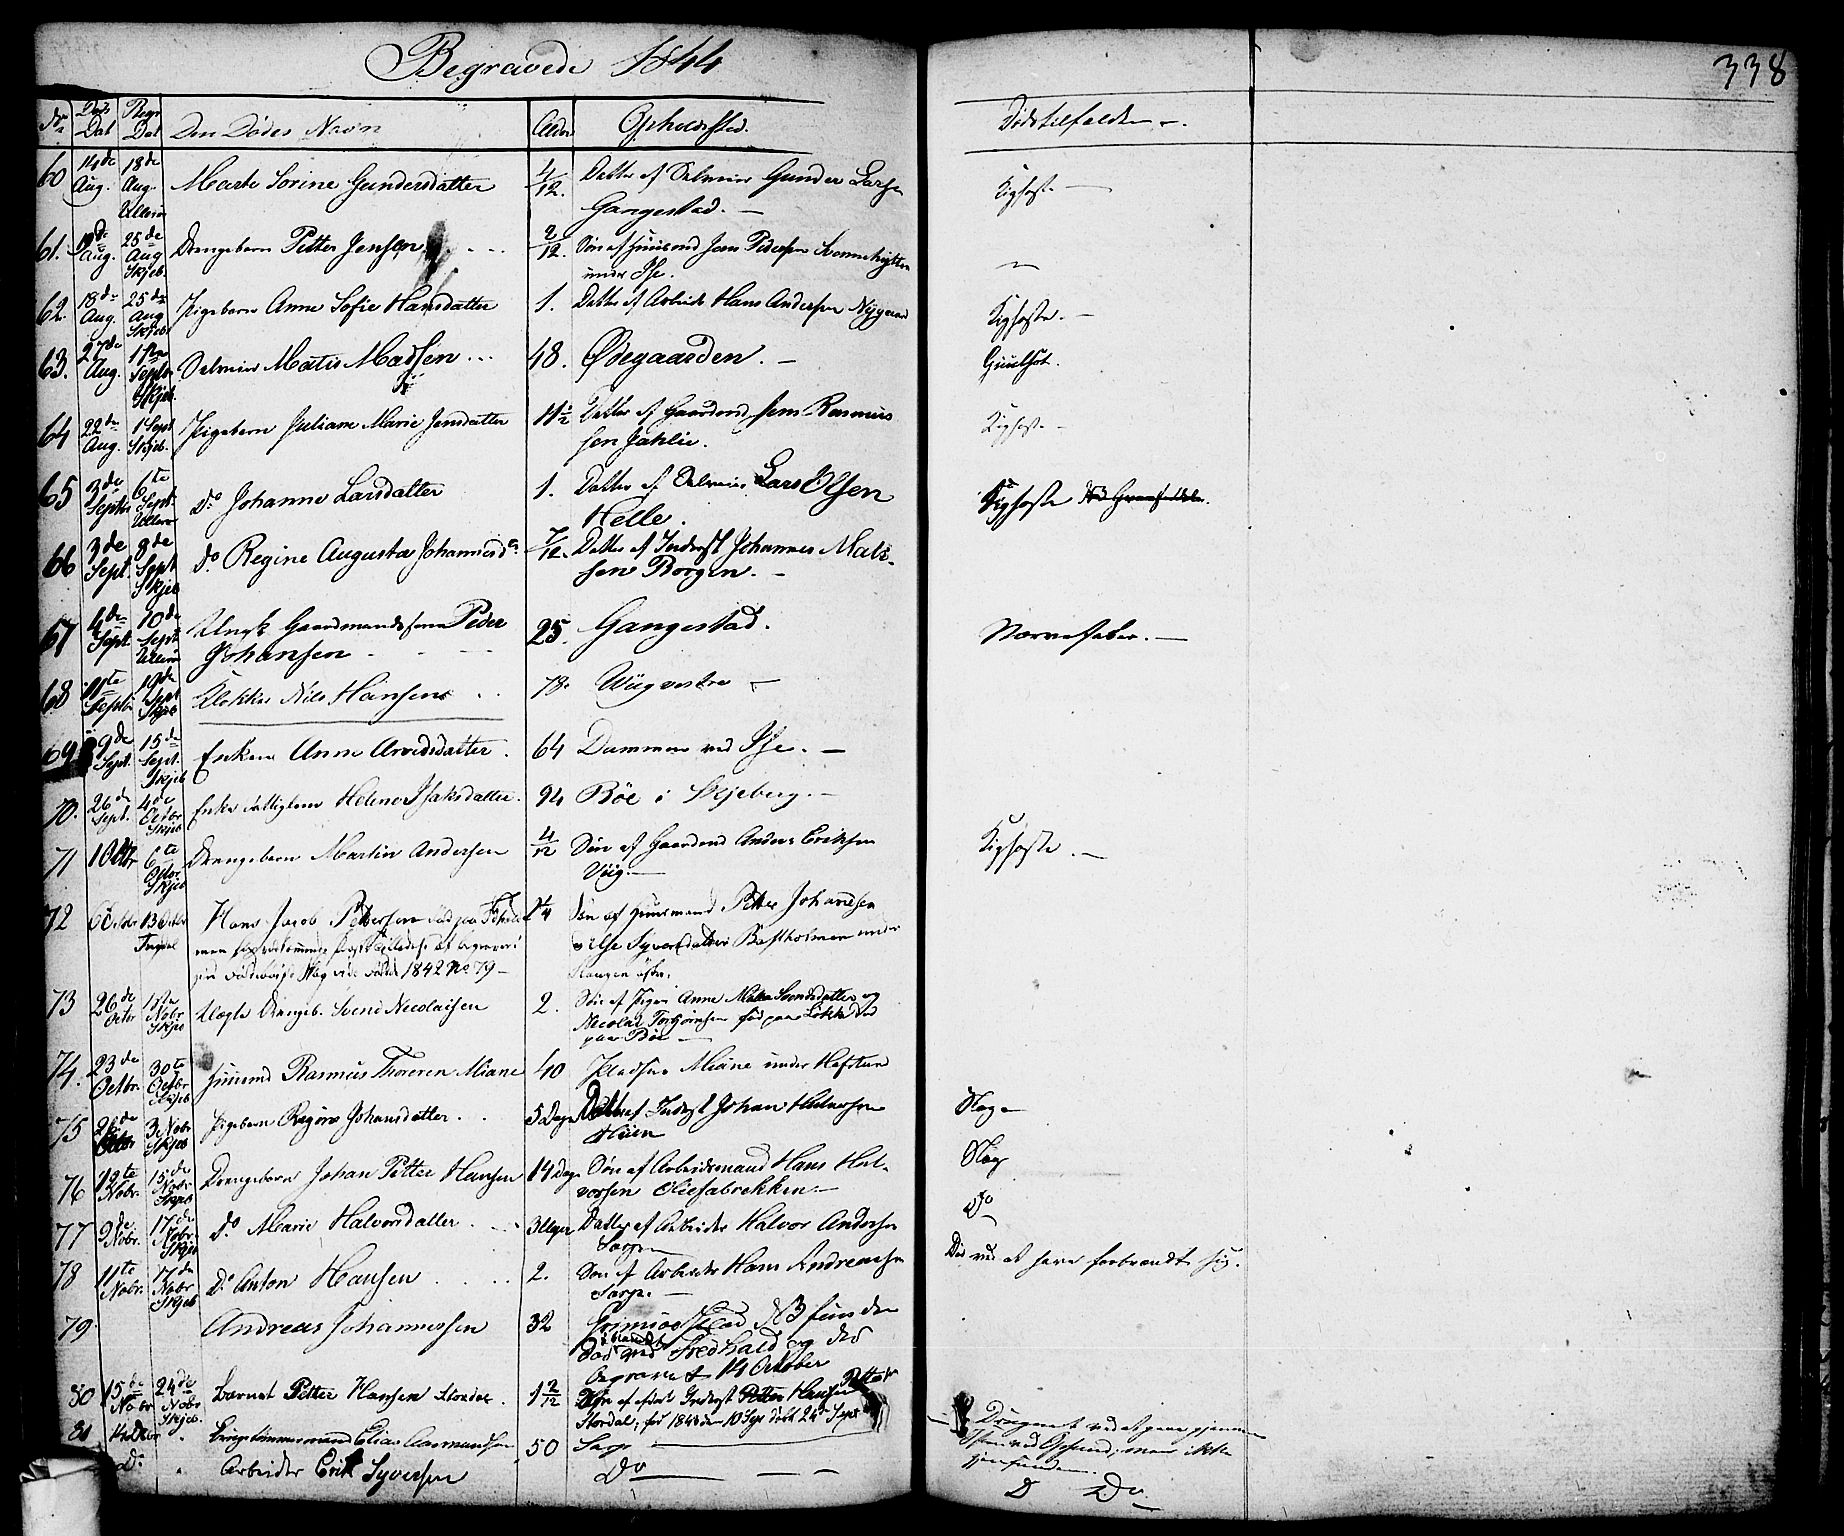 Begravede 1844
338
No Døds Dat Begr Dat Den Dødes Navn Alder Opholdssted. Dødstilfældet.
60 14de Aug. 18de Aug. Ullerøe Marte Sorine Gundersdatter 4/12. Datter af Selveier Gunder Larsen Kighoste
Gangestad.
61. 19de Aug. 25de Aug Skjeb. Drengebarn Petter Jensen 2/12. Søn af Huusmd Jens Pedersen
under Ise.
62. 18de Aug. 25de Aug Skjeb. Pigebarn Anne Sofie Hansdatter 1. Datter af Arbeider Hans Andersen Nygaard Kighoste.
63. 27de Aug. 1ste Septbr Skjeb. Selveier Matis Madsen 48. Ødegaarden. Guulsot.
64 22de Aug. 1 Sept Skjeb. Pigebarn Juliane Marie Jensdatter 11/12 Datter af Gaardmd Jens Rasmus
sen Jahlie. Kighoste
65 3de Septbr 6te Sept. Ullerøe Do Johanne Larsdatter 1. Datter af Selveier Lars Olsen Kighoste
Helle.
66 3de Sept. 8de Sept Skjeb Do Regine Augusta Johannesdr 7/12. Datter af Inderst Johannes Mats
sen Borgen.
67 4de Sept. 10de Sept. Ullerøe Ungk Gaardmandssøn Peder 25. Gangestad. Nervefeber.
Johansen
68 11te Septbr 19de Sept Skjeb Klokker Nils Hansen 78. Wiigvestre
69 9de Sept. 15de Sept. Skjeb Enken Anne Arvidsdatter. 64 Dammen ved Ise.
70. 26de Sept. 4de Octbr Skjeb Enke Fattiglem Helene Isaksdatter. 94 Bøe i Skjeberg.
71 1 Octbr 6te Octbr. Skjeb Drengebarn Martin Andersen 4/12 Søn af Gaardmd Anders Eriksen Kighoste.
Viig.
72 6 Octbr 13 Octbr Hans Jacob Pettersen Søn af Huusmand Petter Johannesen
1842 No 79 Else Syversdatter Bastholmen under
Haugen østre.
73 26de Octbr 1ste Nobr Skjeb Drengeb. Svend Nicolaisen 2. Søn af Pigen Anne Svendsdatter og
Nicolai Torbjørnsen født paa Løkke
paa Bøe
74. 23de Octbr. 30te Octbr Skjeb Huusmd Rasmus Thoresen Miane 40 Pladsen Miane under Hafslun
75 26de Octbr 3de Nobr Skjeb Pigebarn Regine Johansdatter. 5 Dage Datter af Inderst Johan Halvorsen Slag
Huien
76 12te Nobr. 15de Nobr. Skjeb Drengebarn Johan Petter Hansen 14 Dage Søn af Arbeidsmand Hans Hal- Slag
vorsen Oliefabrekken.
77 9de Nobr. 17de Nobr. Skjeb Do Marie Halvorsdatter 3 Uger Datter af Arbeider Halvor Andersen Do
Sarpen
78 11te Nobr. 17de Nobr Skjeb Do Anton Hansen 2. Søn af Arbeider Hans Andreassen Død ved at have forbrændt sig.
Sarpen.
79 Andreas Johannessen 32 Grimsøe No 3 funden
død ved Fredhald og der
begravet 14 October
80 15de Nobr 24de Nobr Skjeb. Barnet Petter Hansen Stordal 1 2/12 Søn af Inderst Petter Hansen
Stordal, født 1843 den 10 Sept døbt 24de Sept
81 Do 50 Sarpen Druknet ved at gaae gjennem
Isen ved men ikke
gjenfunden.
Do Arbeider Erik Syversen Do D Do